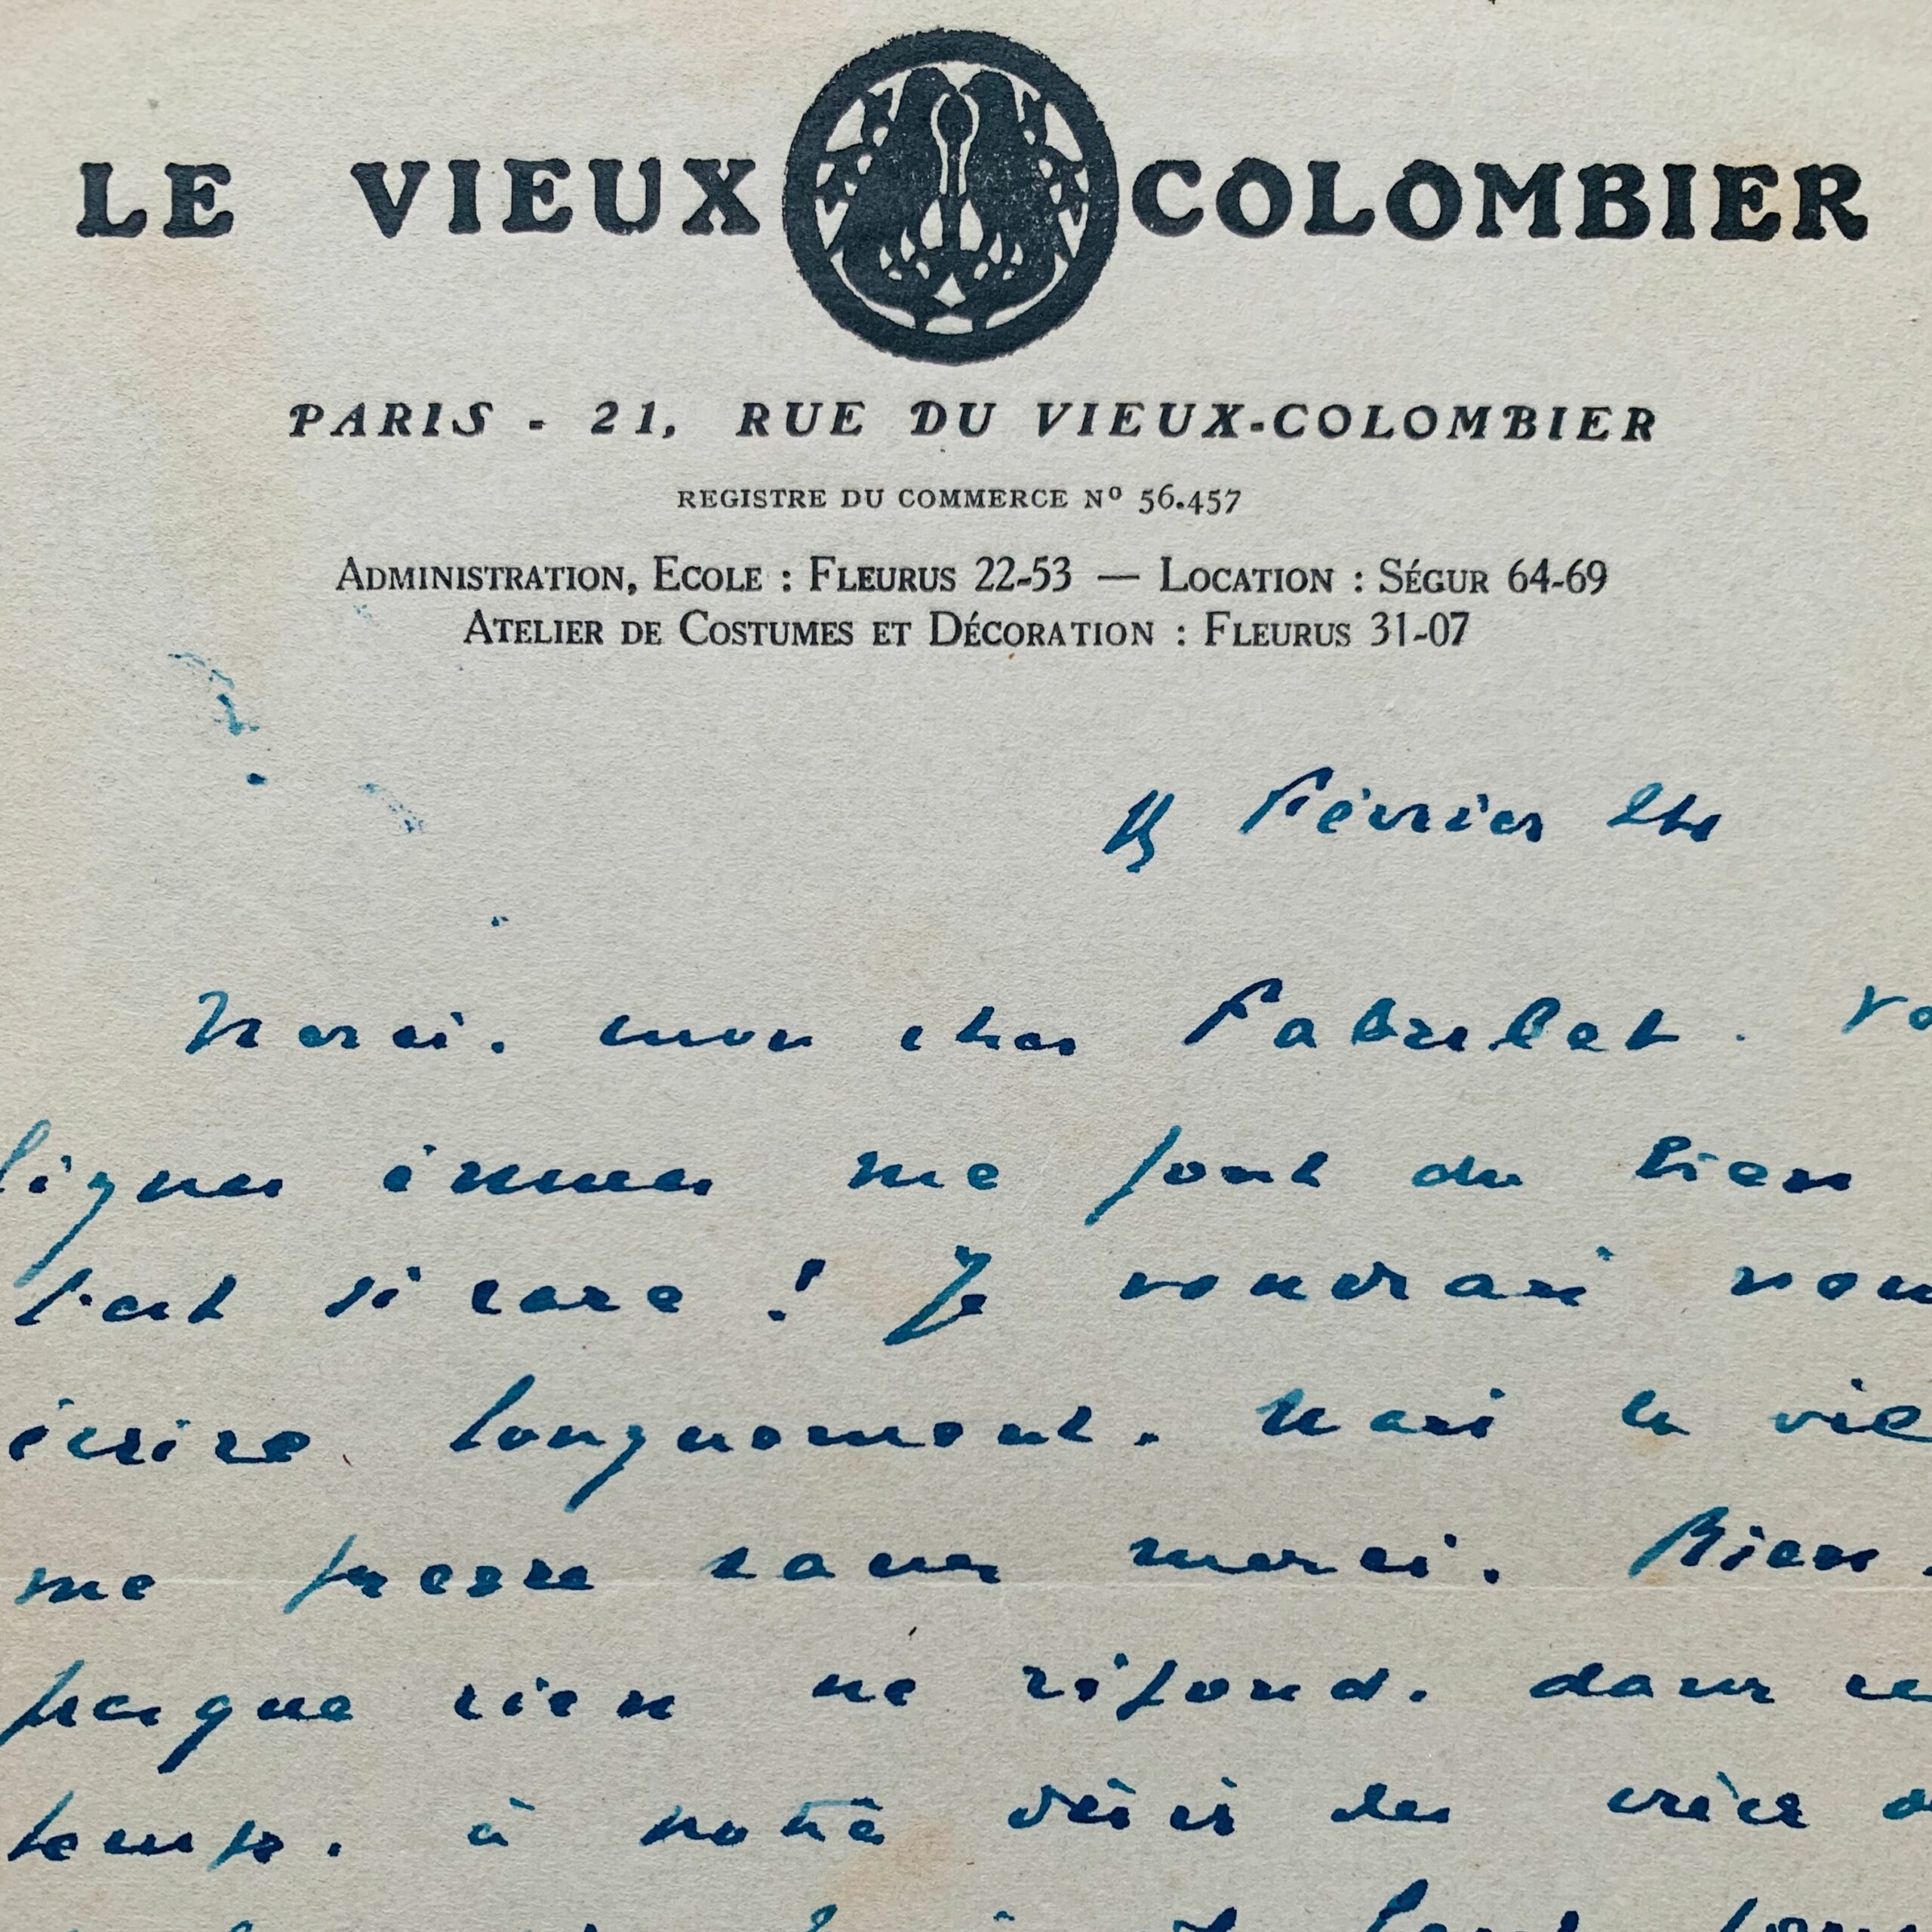 LE VIEUX COLOMBIER
PARIS - 21, RUE DU VIEUX-COLOMBIER
REGISTRE DU COMMERCE Nº 56.457
ADMINISTRATION, ECOLE : FLEURUS 22-53 — LOCATION : SÉGUR 64-69
ATELIER DE COSTUMES ET DÉCORATION : FLEURUS 31-07
Février 24
Merci, mon cher Fabulet. Vo
lignes émues me font du bien
C'est si rare ! Je voudrais vous
écrire longuement. Mais la vie
me presse sans merci. Rien,
presque rien ne répond, dans ce
temps, à notre désir de créer